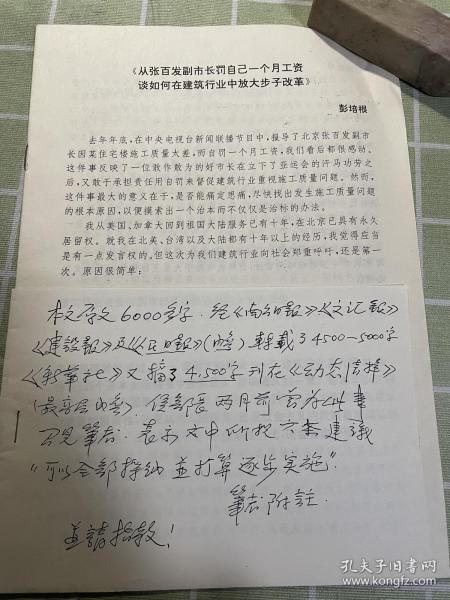 《从张百发副市长罚自己一个月工资
谈如何在建筑行业中放大步子改革》
彭培根
去年年底，在中央电视台新闻联播节目中，报导了北京张百发副市
长因某住宅楼施工质量太差，而自罚一个月工资，我们看后都很感动。
这件事反映了一位敢作敢为的好市长在立下了亚运会的汗马功劳之
后，又敢于承担责任用自罚来督促建筑行业重视施工质量问题。然而，
这件事最大的意义在于，是否能痛定思痛，尽快找出发生施工质量问题
的根本原因，以便摸索出一个治本而不仅仅是治标的办法。
我从美国、加拿大回到祖国大陆服务已有十年，在北京已具有永久
居留权。就我在北美、台湾以及大陆都有十年以上的经历，我觉得应当
是有一点发言权的，但这次为我们建筑行业向社会郑重呼吁，还是第一
次。原因很简单：
本文原文6000多字，经《》《文汇报》
《建設報》及《日報》转載了4500-5000字
《新華社》又摘了4,500字刊在《动态清样》
，侯部長两月前曾为此事
召見筆者，表示文中所提六条建議
“可以全部採納並打算逐步实施”.
筆者附註
並請指教！
孔夫子旧书网
www.kongfz.com